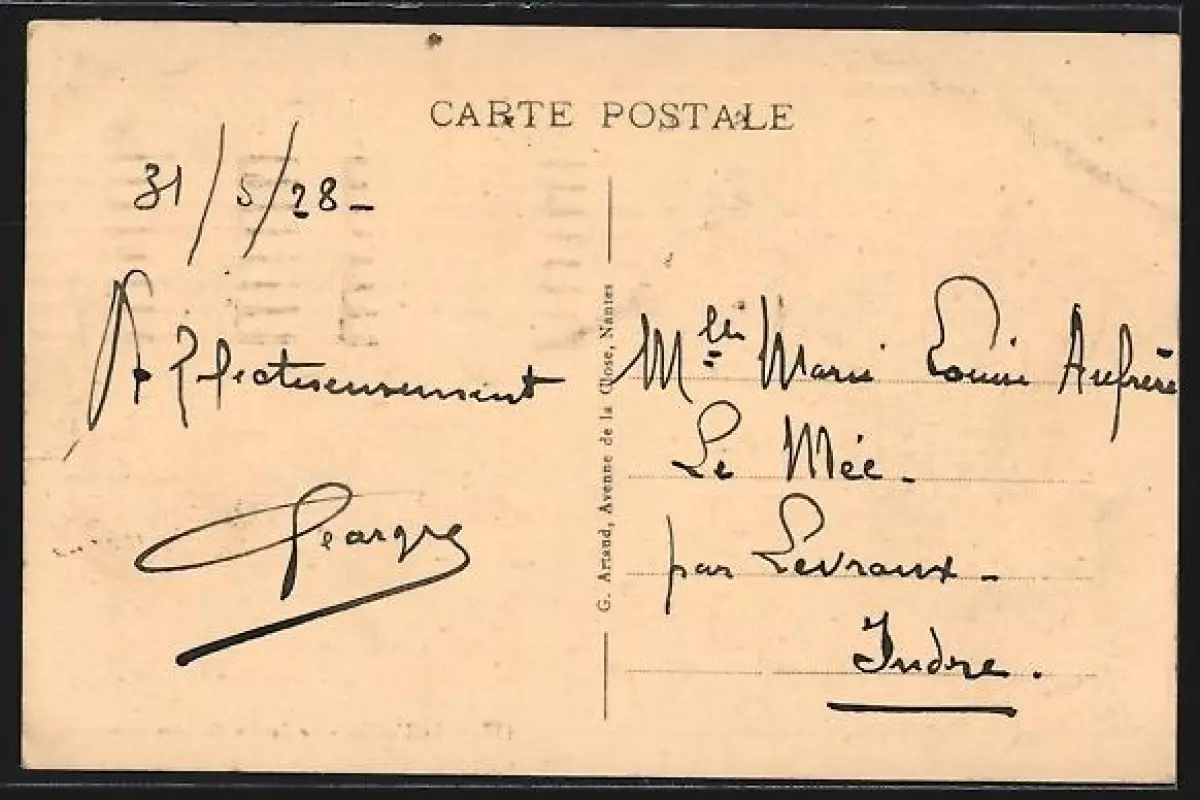 CARTE POSTALE
31/5/28-
Affectueusement
Georges
G. Artaud, Avenue de la Close, Nantes
Mlle Marie Louise Aufrère
Le Mée-
par Levroux-
Indre.